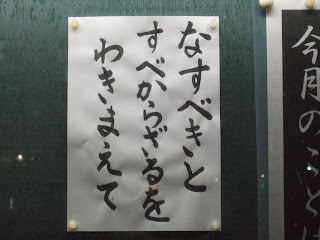 なすべきと
すべからざるを
わきまえて
今月のことば